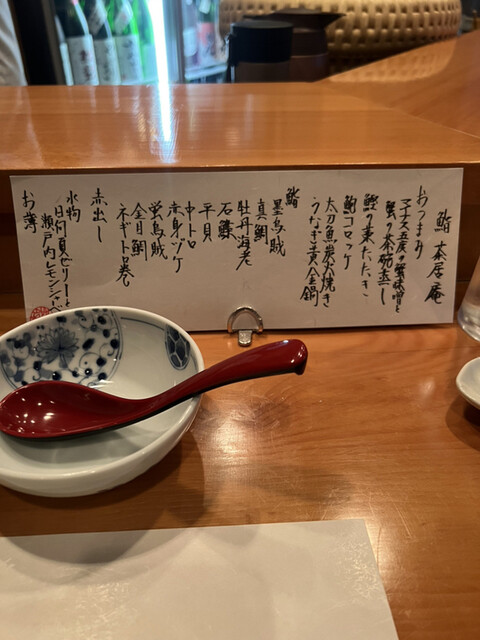 鮨 茶居庵
おつまみ
マイナス五度の蟹味噌と
蟹の茶碗蒸し
鰹の藁たたき
鮑コロッケ
太刀魚炭火焼き
うなぎ黄金鍋
鮨
墨烏賊
真鯛
牡丹海老
石鯵
平貝
中トロ
赤身ヅケ
蛍烏賊
金目鯛
ネギトロ巻
赤出し
水物
日向夏ゼリーと
瀬戸内レモン
お薄